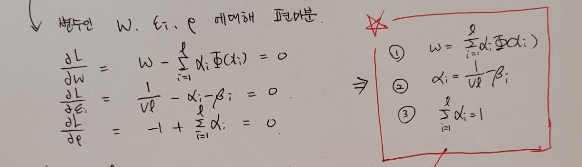 변수인 w, ξi, ρ 에 대해 편미분.
∂L/∂w = w - Σ_{i=1}^{ℓ} αi Φ(xi) = 0
∂L/∂ξi = 1/vℓ - αi - βi = 0
∂L/∂ρ = -1 + Σ_{i=1}^{ℓ} αi = 0
⇒
① w = Σ_{i=1}^{ℓ} αi Φ(xi)
② αi = 1/vℓ - βi
③ Σ_{i=1}^{ℓ} αi = 1